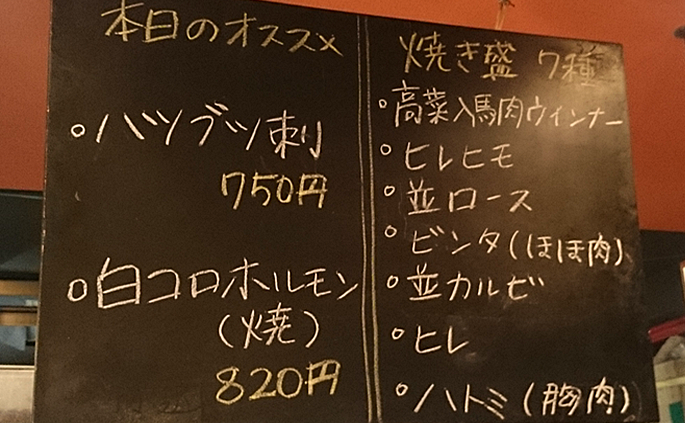 本日のオススメ
○ハツブツ刺
750円
○白コロホルモン
(焼)
820円
焼き盛 7種
○高菜入馬肉ウインナー
○ヒレヒモ
○並ロース
○ビンタ(ほほ肉)
○並カルビ
○ヒレ
○ハトミ(胸肉)